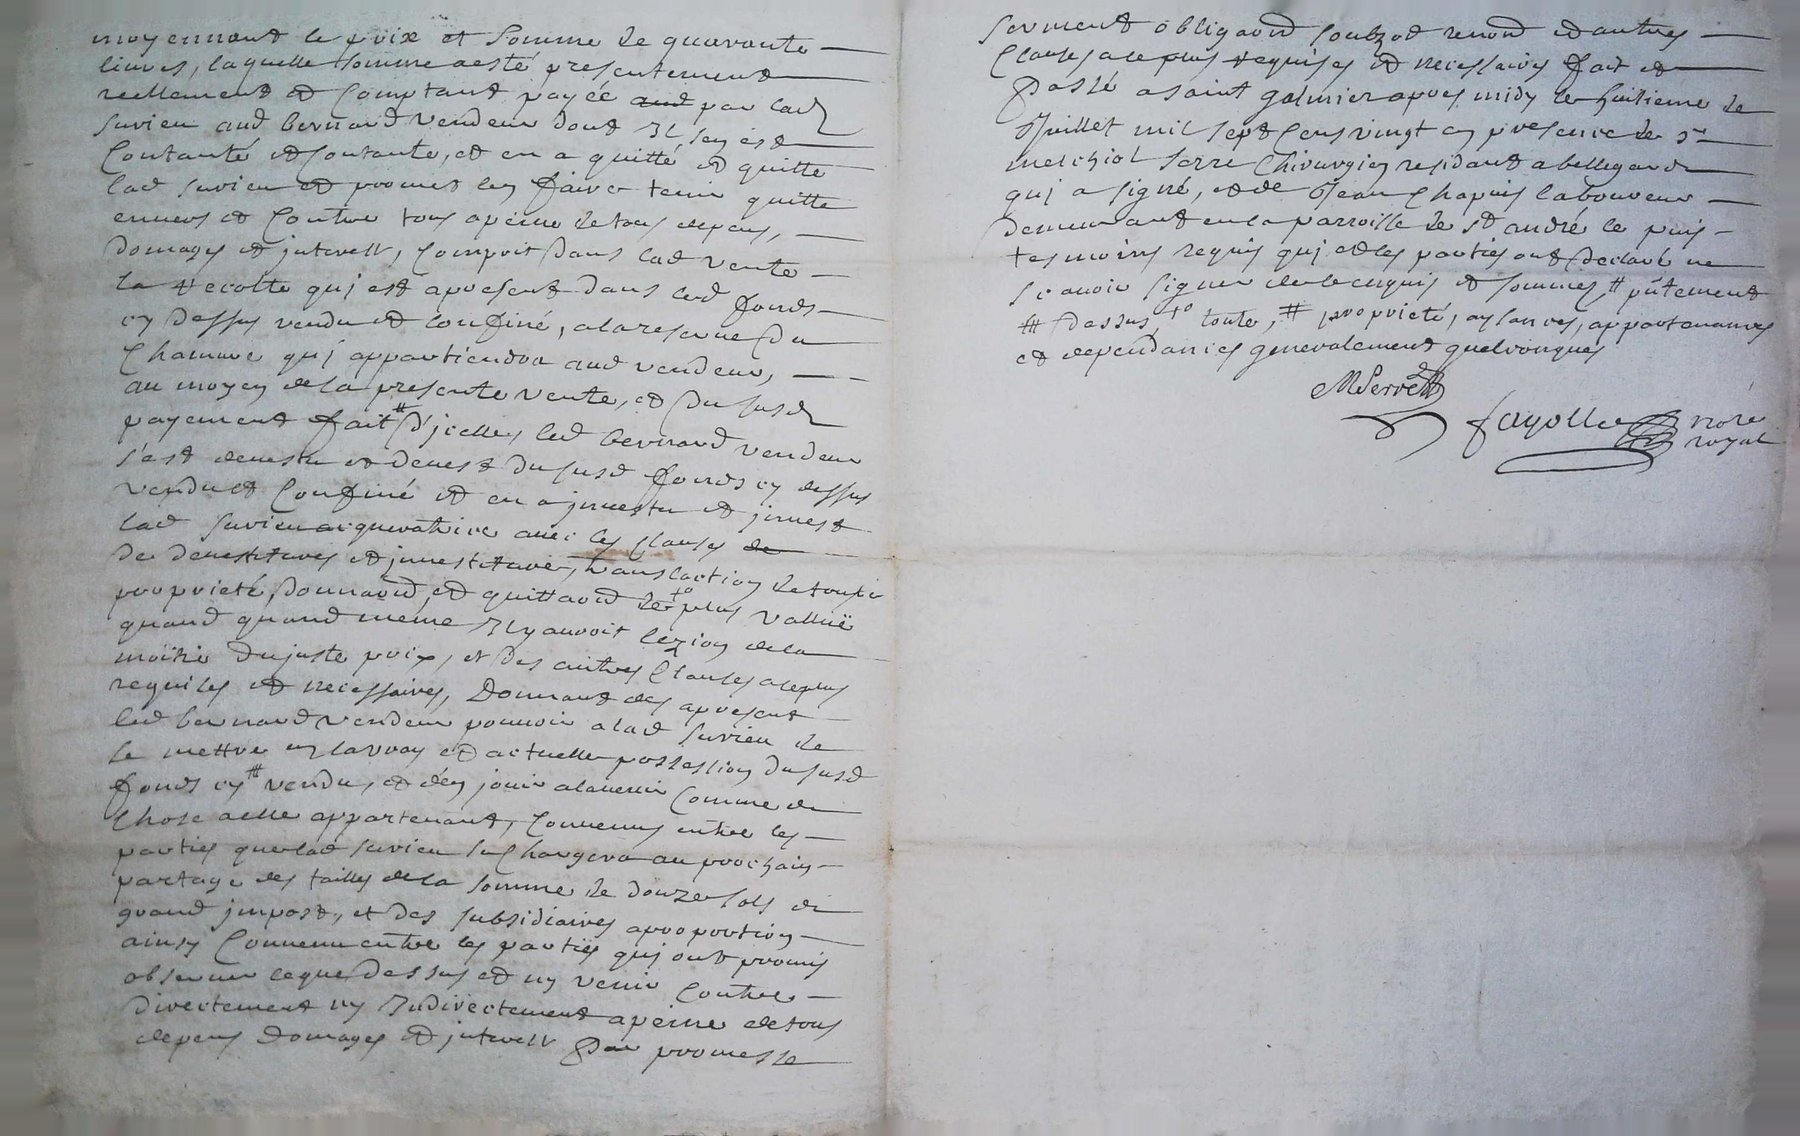 moyennant le prix et somme de quarante
livres, laquelle somme a esté presentement
reellement et comptant payée aud par lad
surieu aud bernard vendeur dont Il sen est
Contanté et contante, et en a quitté et quitte
lad surieu et promet len faire tenir quitte
envers et Contre tous a peine de tous depens,
Domages et interest, Comprit dans lad vente
la recolte qui est a present dans led fonds
cy Dessus vendu et confiné, a la reserve du
Chanvre qui appartiendra aud vendeur,
au moyen de la presente vente, et Du susd
payement fait # D'icelle, led bernard vendeur
s'est devestu et devest du susd fonds cy dessus
vendu et Confiné et en a jnvestu et jnvest
lad surieu acqueratrice avec les clauses de
De devestitures et jnvestiture, translation de toute
proprieté, Donnaond et quittaond de to plus vallué
quand quand meme Il y auroit lezion de la
moitié du juste prix, et des autres Clauses a ce plus
requises et necessaires, Donnant des apresent
led bernard vendeur pouvoir a lad surieu de
se mettre en la vray et actuelle possession du susd
fonds cy # vendu, et d'en jouir a lavenir Comme de
Chose a elle appartenant, Convenus entre les
parties que lad surieu se Chargera au prochain
partage des tailles de la somme de douze sols de
grand jmpost, et des subsidiaires a proportion
ainsy Convenu entre les parties qui ont promis
observer ce que dessus et ny venir Contre
directement ny Indirectement a peine de tous
depens Domages et interest Par promesse
serment obligaond soubzod renond et autres
Clauses a ce plus requises et necessaires fait et
Passé a saint galmier apres midy le huitieme de
Juillet mil sept Cens vingt en presence de sr
melchiol serre Chirurgien residant a bellegarde
qui a signé, et de Jean Chapuis laboureur
Demeurant en la parroisse de st andré le puis
tesmoins requis qui et les parties ont declaré ne
scavoir signer de ce enquis et sommés, # p̃ntement
# dessus, to toute, # proprieté, aysances, appartenances
et dependances generalement quelconques
MSerre
fayolle nore
royal